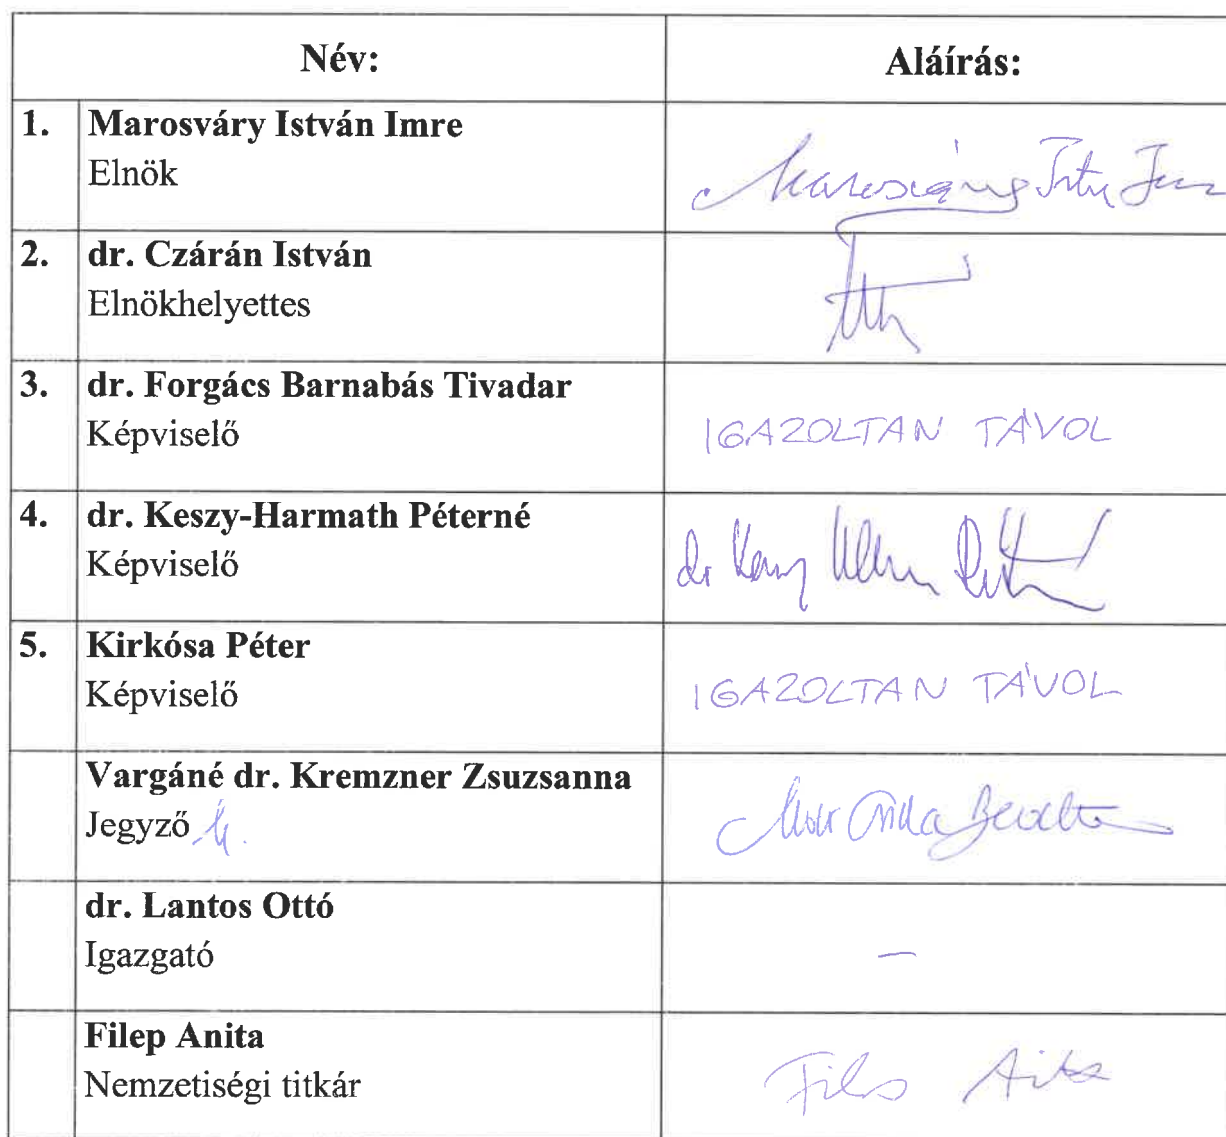 Név: Aláírás:
1. Marosváry István Imre
Elnök
2. dr. Czárán István
Elnökhelyettes
3. dr. Forgács Barnabás Tivadar
Képviselő IGAZOLTAN TÁVOL
4. dr. Keszy-Harmath Péterné
Képviselő
5. Kirkósa Péter
Képviselő IGAZOLTAN TÁVOL
Vargáné dr. Kremzner Zsuzsanna
Jegyző
dr. Lantos Ottó
Igazgató –
Filep Anita
Nemzetiségi titkár